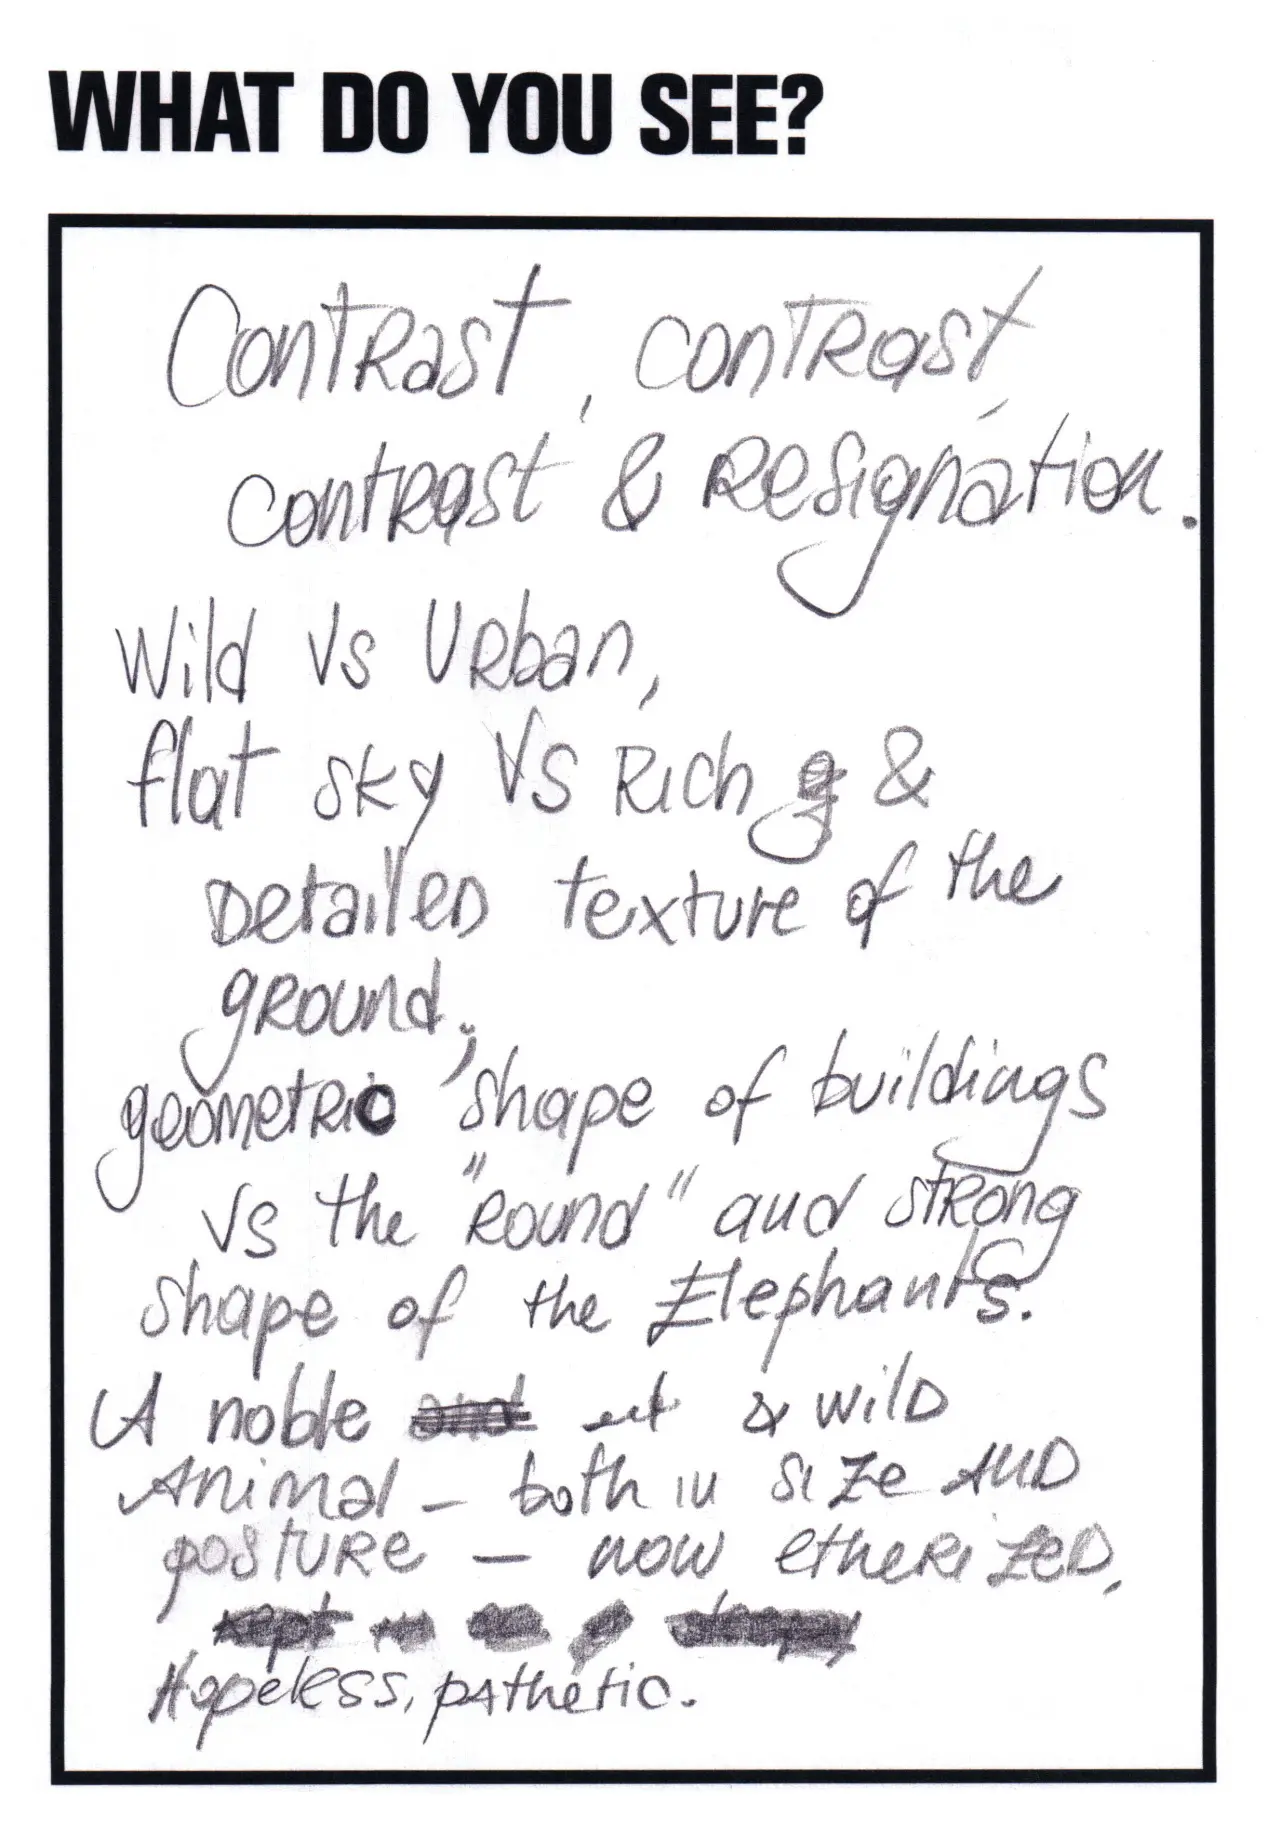 WHAT DO YOU SEE?
Contrast, contrast,
contrast & Resignation.
Wild Vs Urban,
flat sky Vs Rich &
Detailed texture of the
ground;
geometric shape of buildings
vs the "Round" and strong
shape of the Elephants.
A noble & wild
Animal - both in size AND
posture - now etherized,
Hopeless, pathetic.